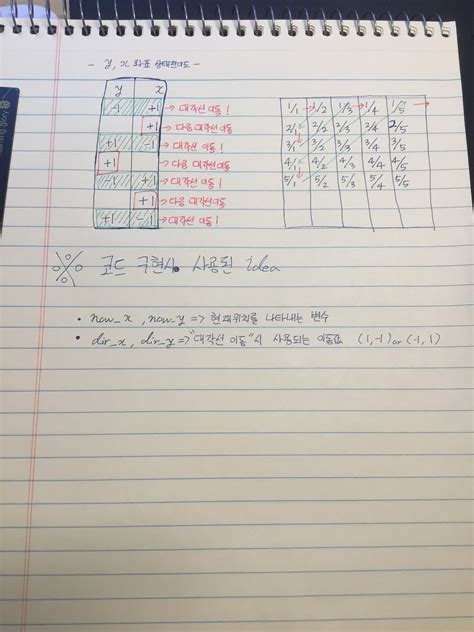 - y, x 좌표 상태변이도 -
y x
-1 +1 → 대각선 이동!
+1 → 다음 대각선 이동
+1 -1 → 대각선 이동!
+1 → 다음 대각선 이동
-1 +1 → 대각선 이동!
+1 → 다음 대각선 이동
+1 -1 → 대각선 이동!
1/1 1/2 1/3 1/4 1/5
2/1 2/2 2/3 2/4 2/5
3/1 3/2 3/3 3/4 3/5
4/1 4/2 4/3 4/4 4/5
5/1 5/2 5/3 5/4 5/5
※ 코드 구현시 사용된 idea
• now_x , now_y => 현재위치를 나타내는 변수
• dir_x, dir_y => "대각선 이동"시 사용되는 이동값 (1,-1) or (-1,1)